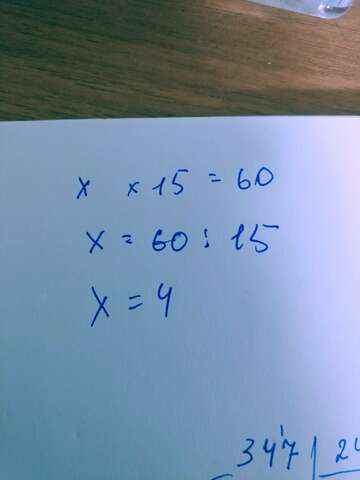 x × 15 = 60
x = 60 : 15
x = 4
347 | 24